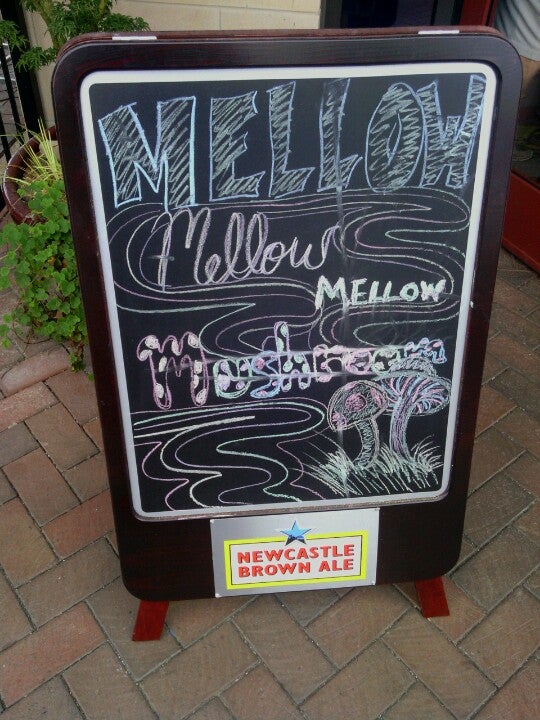 MELLOW
Mellow
MELLOW
Mushroom
NEWCASTLE
BROWN ALE